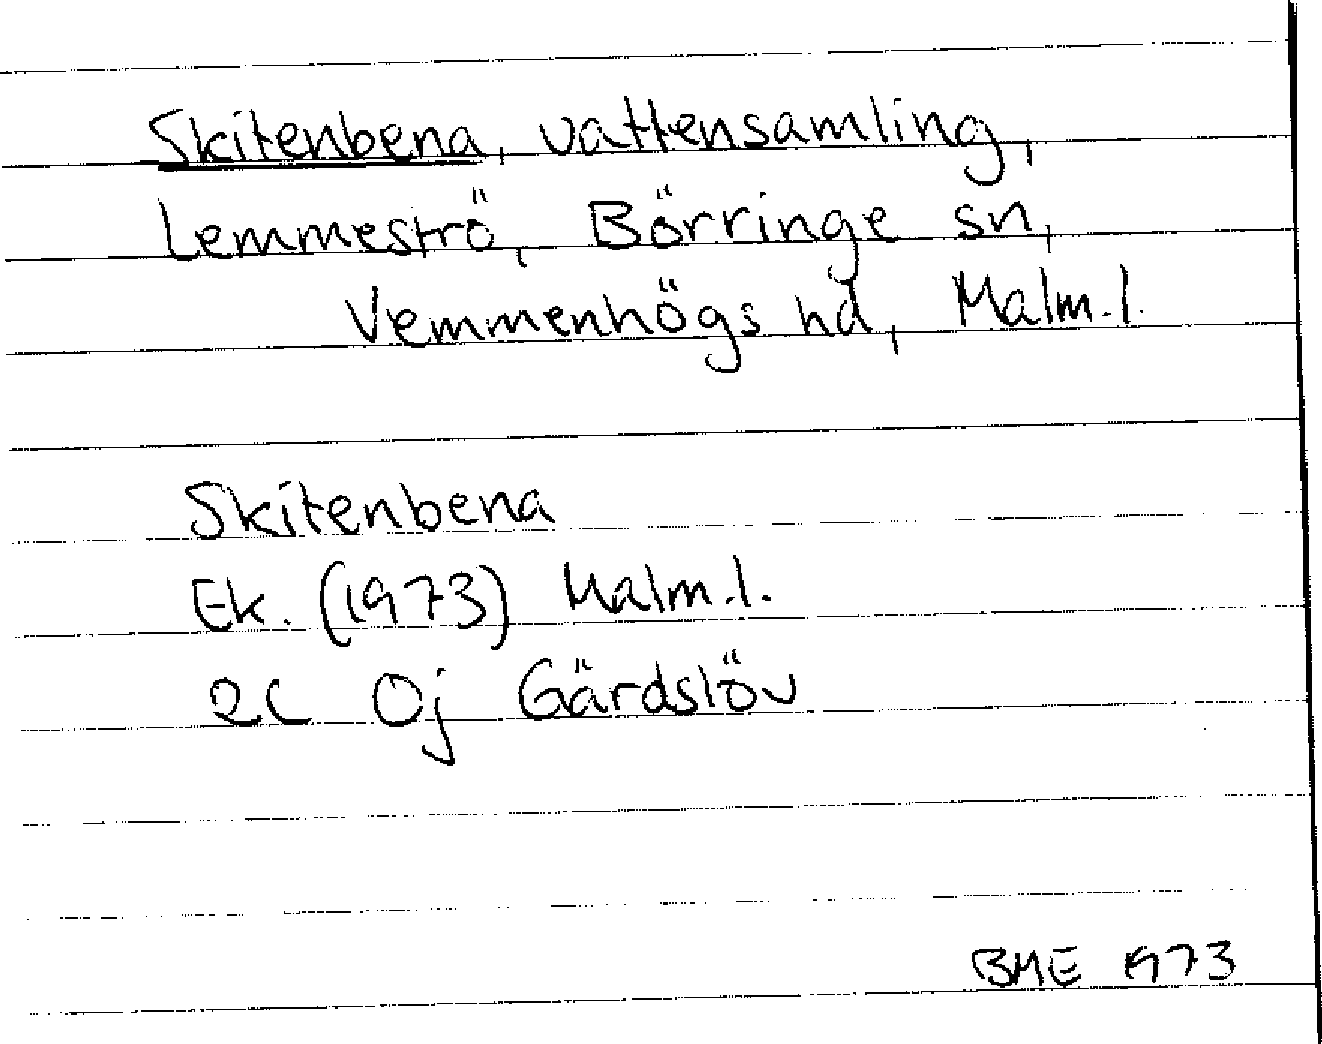 Skitenbena, vattensamling,
Lemmeströ, Börringe sn,
Vemmenhögs hd, Malm.l.
Skitenbena
Ek. (1973) Malm.l.
2C 0j Gärdslöv
BME 1973